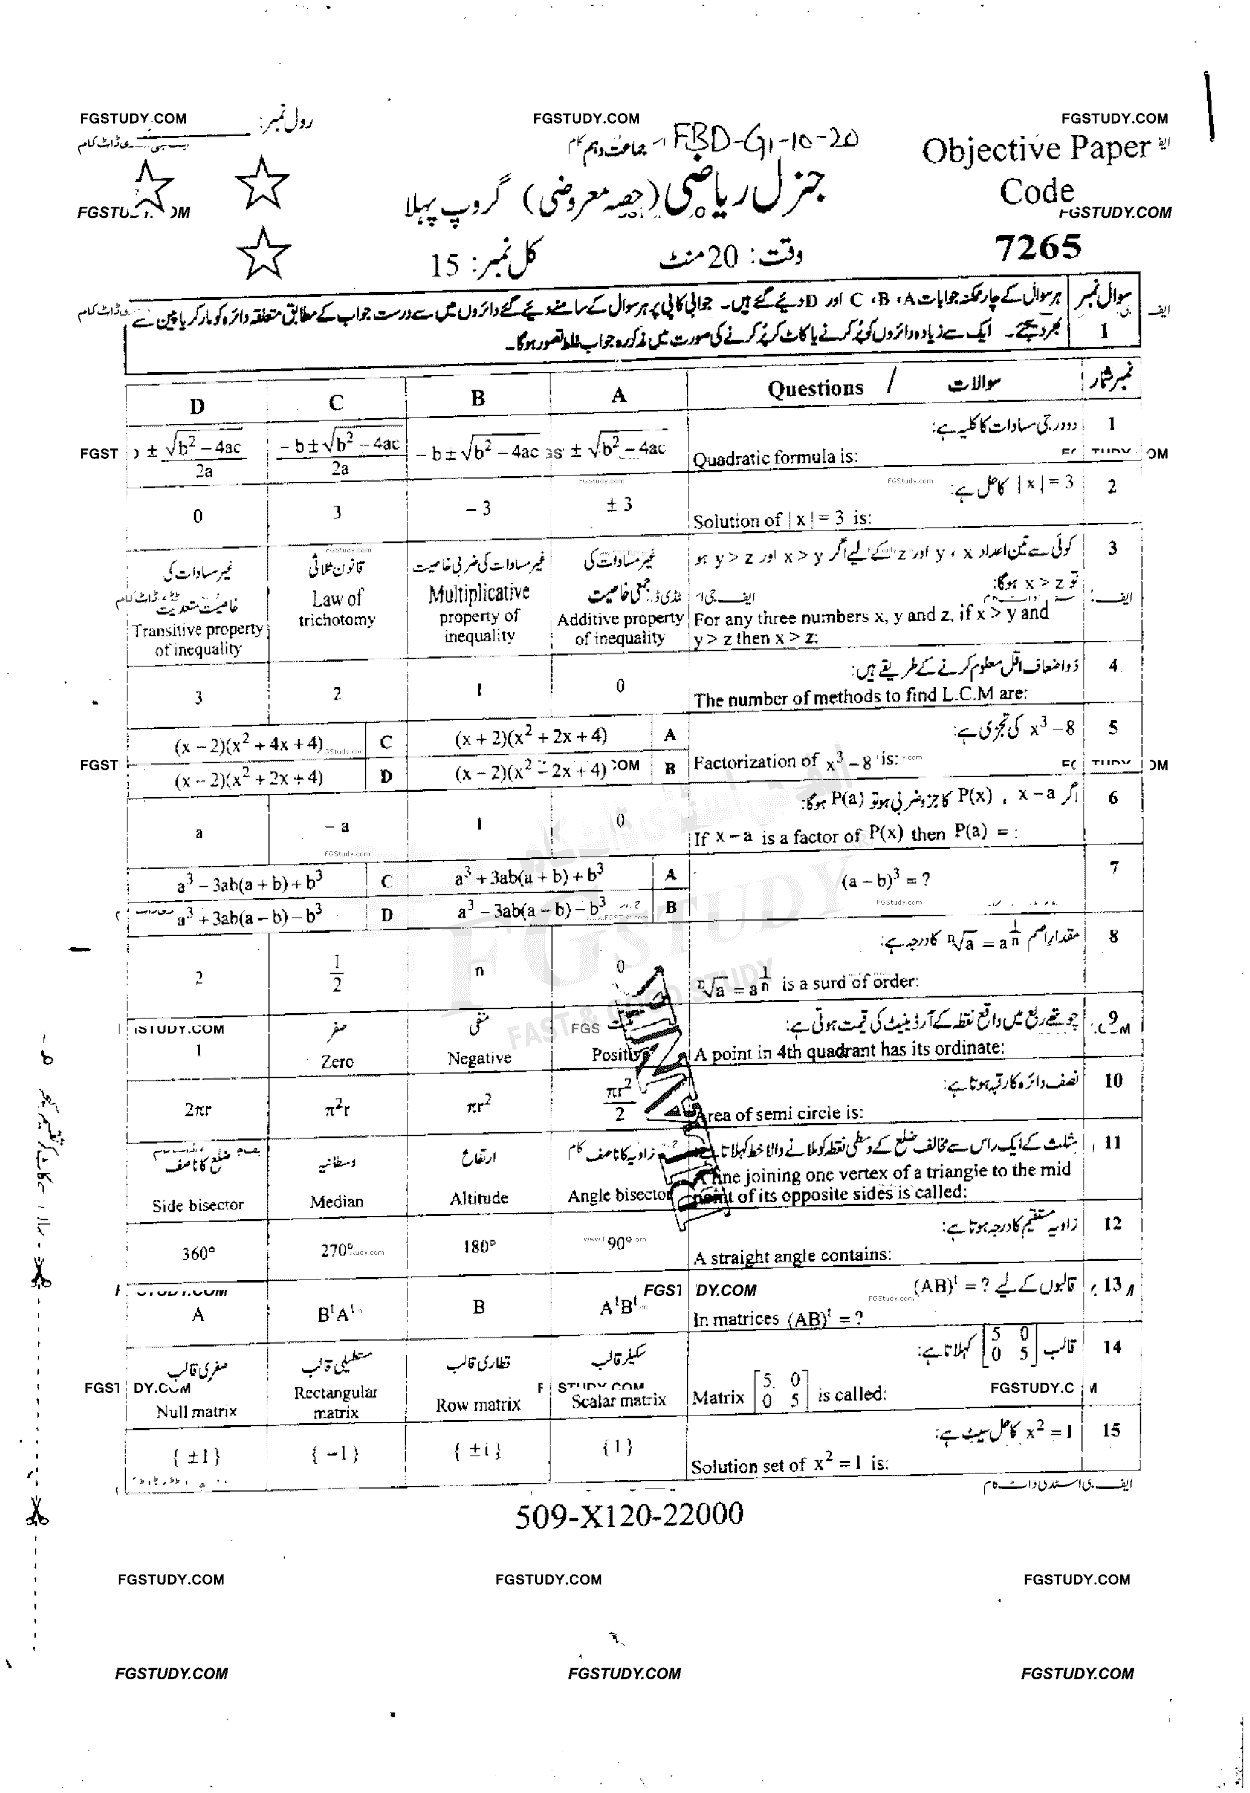 FGSTUDY.COM FGSTUDY.COM FGSTUDY.COM
رول نمبر:
جماعت دہم FBD-G1-10-20
Objective Paper
Code
7265
FGSTUDY.COM
جنرل ریاضی (حصہ معروضی) گروپ پہلا
وقت: 20 منٹ کل نمبر: 15
سوال نمبر 1
ہر سوال کے چار ممکنہ جوابات A، B، C اور D دیئے گئے ہیں۔ جوابی کاپی پر ہر سوال کے سامنے دیئے گئے دائروں میں سے درست جواب کے مطابق متعلقہ دائرہ کو مارکر یا پین سے
بھر دیجئے۔ ایک سے زیادہ دائروں کو پُر کرنے یا کاٹ کر پُر کرنے کی صورت میں مذکورہ جواب غلط تصور ہوگا۔
D C B A Questions / سوالات نمبر شمار
1 دو درجی مساوات کا کلیہ ہے:
Quadratic formula is:
± √b² – 4ac
– b ± √b² – 4ac
– b ± √b² – 4ac / 2a
± √b² – 4ac / 2a
2 |x| = 3 کا حل ہے:
Solution of |x| = 3 is:
± 3
– 3
3
0
3 کوئی سے تین اعداد x، y اور z کے لیے اگر x > y اور y > z ہو
تو x > z ہوگا:
For any three numbers x, y and z, if x > y and
y > z then x > z:
غیر مساوات کی
جمعی خاصیت
Additive property
of inequality
غیر مساوات کی ضربی خاصیت
Multiplicative
property of
inequality
قانون ثلاثی
Law of
trichotomy
غیر مساوات کی
خاصیت متعدیت
Transitive property
of inequality
4 ذواضعاف اقل معلوم کرنے کے طریقے ہیں:
The number of methods to find L.C.M are:
0
1
2
3
5 x³ – 8 کی تجزی ہے:
Factorization of x³ – 8 is:
A (x + 2)(x² + 2x + 4)
B (x – 2)(x² – 2x + 4)
C (x – 2)(x² + 4x + 4)
D (x – 2)(x² + 2x + 4)
6 اگر x – a ، P(x) کا جزو ضربی ہو تو P(a) ہوگا:
If x – a is a factor of P(x) then P(a) = :
0
1
– a
a
7 (a – b)³ = ?
A a³ + 3ab(a + b) + b³
B a³ – 3ab(a – b) – b³
C a³ – 3ab(a + b) + b³
D a³ + 3ab(a – b) – b³
8 مقدار اصم ⁿ√a = a^(1/n) کا درجہ ہے:
ⁿ√a = a^(1/n) is a surd of order:
0
n
1/2
2
9 چوتھے ربع میں واقع نقطہ کے آرڈینیٹ کی قیمت ہوتی ہے:
A point in 4th quadrant has its ordinate:
Positive
منفی
Negative
صفر
Zero
1
10 نصف دائرہ کا رقبہ ہوتا ہے:
Area of semi circle is:
πr²/2
πr²
π²r
2πr
11 مثلث کے ایک راس سے مخالف ضلع کے وسطی نقطہ کو ملانے والا خط کہلاتا ہے:
A line joining one vertex of a triangle to the mid
point of its opposite sides is called:
زاویہ کا ناصف
Angle bisector
ارتفاع
Altitude
وسطانیہ
Median
ضلع کا ناصف
Side bisector
12 زاویہ مستقیم کا درجہ ہوتا ہے:
A straight angle contains:
90°
180°
270°
360°
13 قالبوں کے لیے (AB)ᵗ = ?
In matrices (AB)ᵗ = ?
AᵗBᵗ
B
BᵗAᵗ
A
14 قالب [5 0 / 0 5] کہلاتا ہے:
Matrix [5 0 / 0 5] is called:
سکیلر قالب
Scalar matrix
قطاری قالب
Row matrix
مستطیلی قالب
Rectangular
matrix
صفری قالب
Null matrix
15 x² = 1 کا حل سیٹ ہے:
Solution set of x² = 1 is:
{1}
{±i}
{–1}
{±1}
ایف جی اسٹڈی ڈاٹ کام
509-X120-22000
FGSTUDY.COM FGSTUDY.COM FGSTUDY.COM
FGSTUDY.COM FGSTUDY.COM FGSTUDY.COM
FGSTUDY
FAST & GOOD STUDY